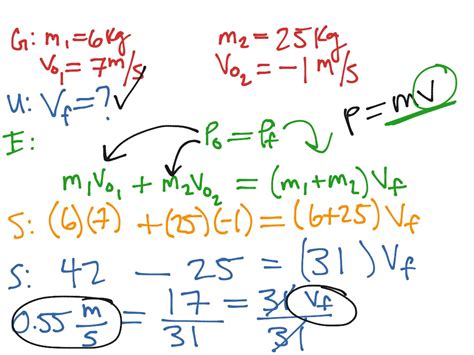 G: m₁=6kg m₂=25kg
V₀₁=7m/s V₀₂=-1m/s
U: Vf=? ✓
P=mV
E: P₀=Pf
m₁V₀₁+m₂V₀₂=(m₁+m₂)Vf
S: (6)(7)+(25)(-1)=(6+25)Vf
S: 42-25=(31)Vf
0.55 m/s = 17/31 = 31 Vf/31